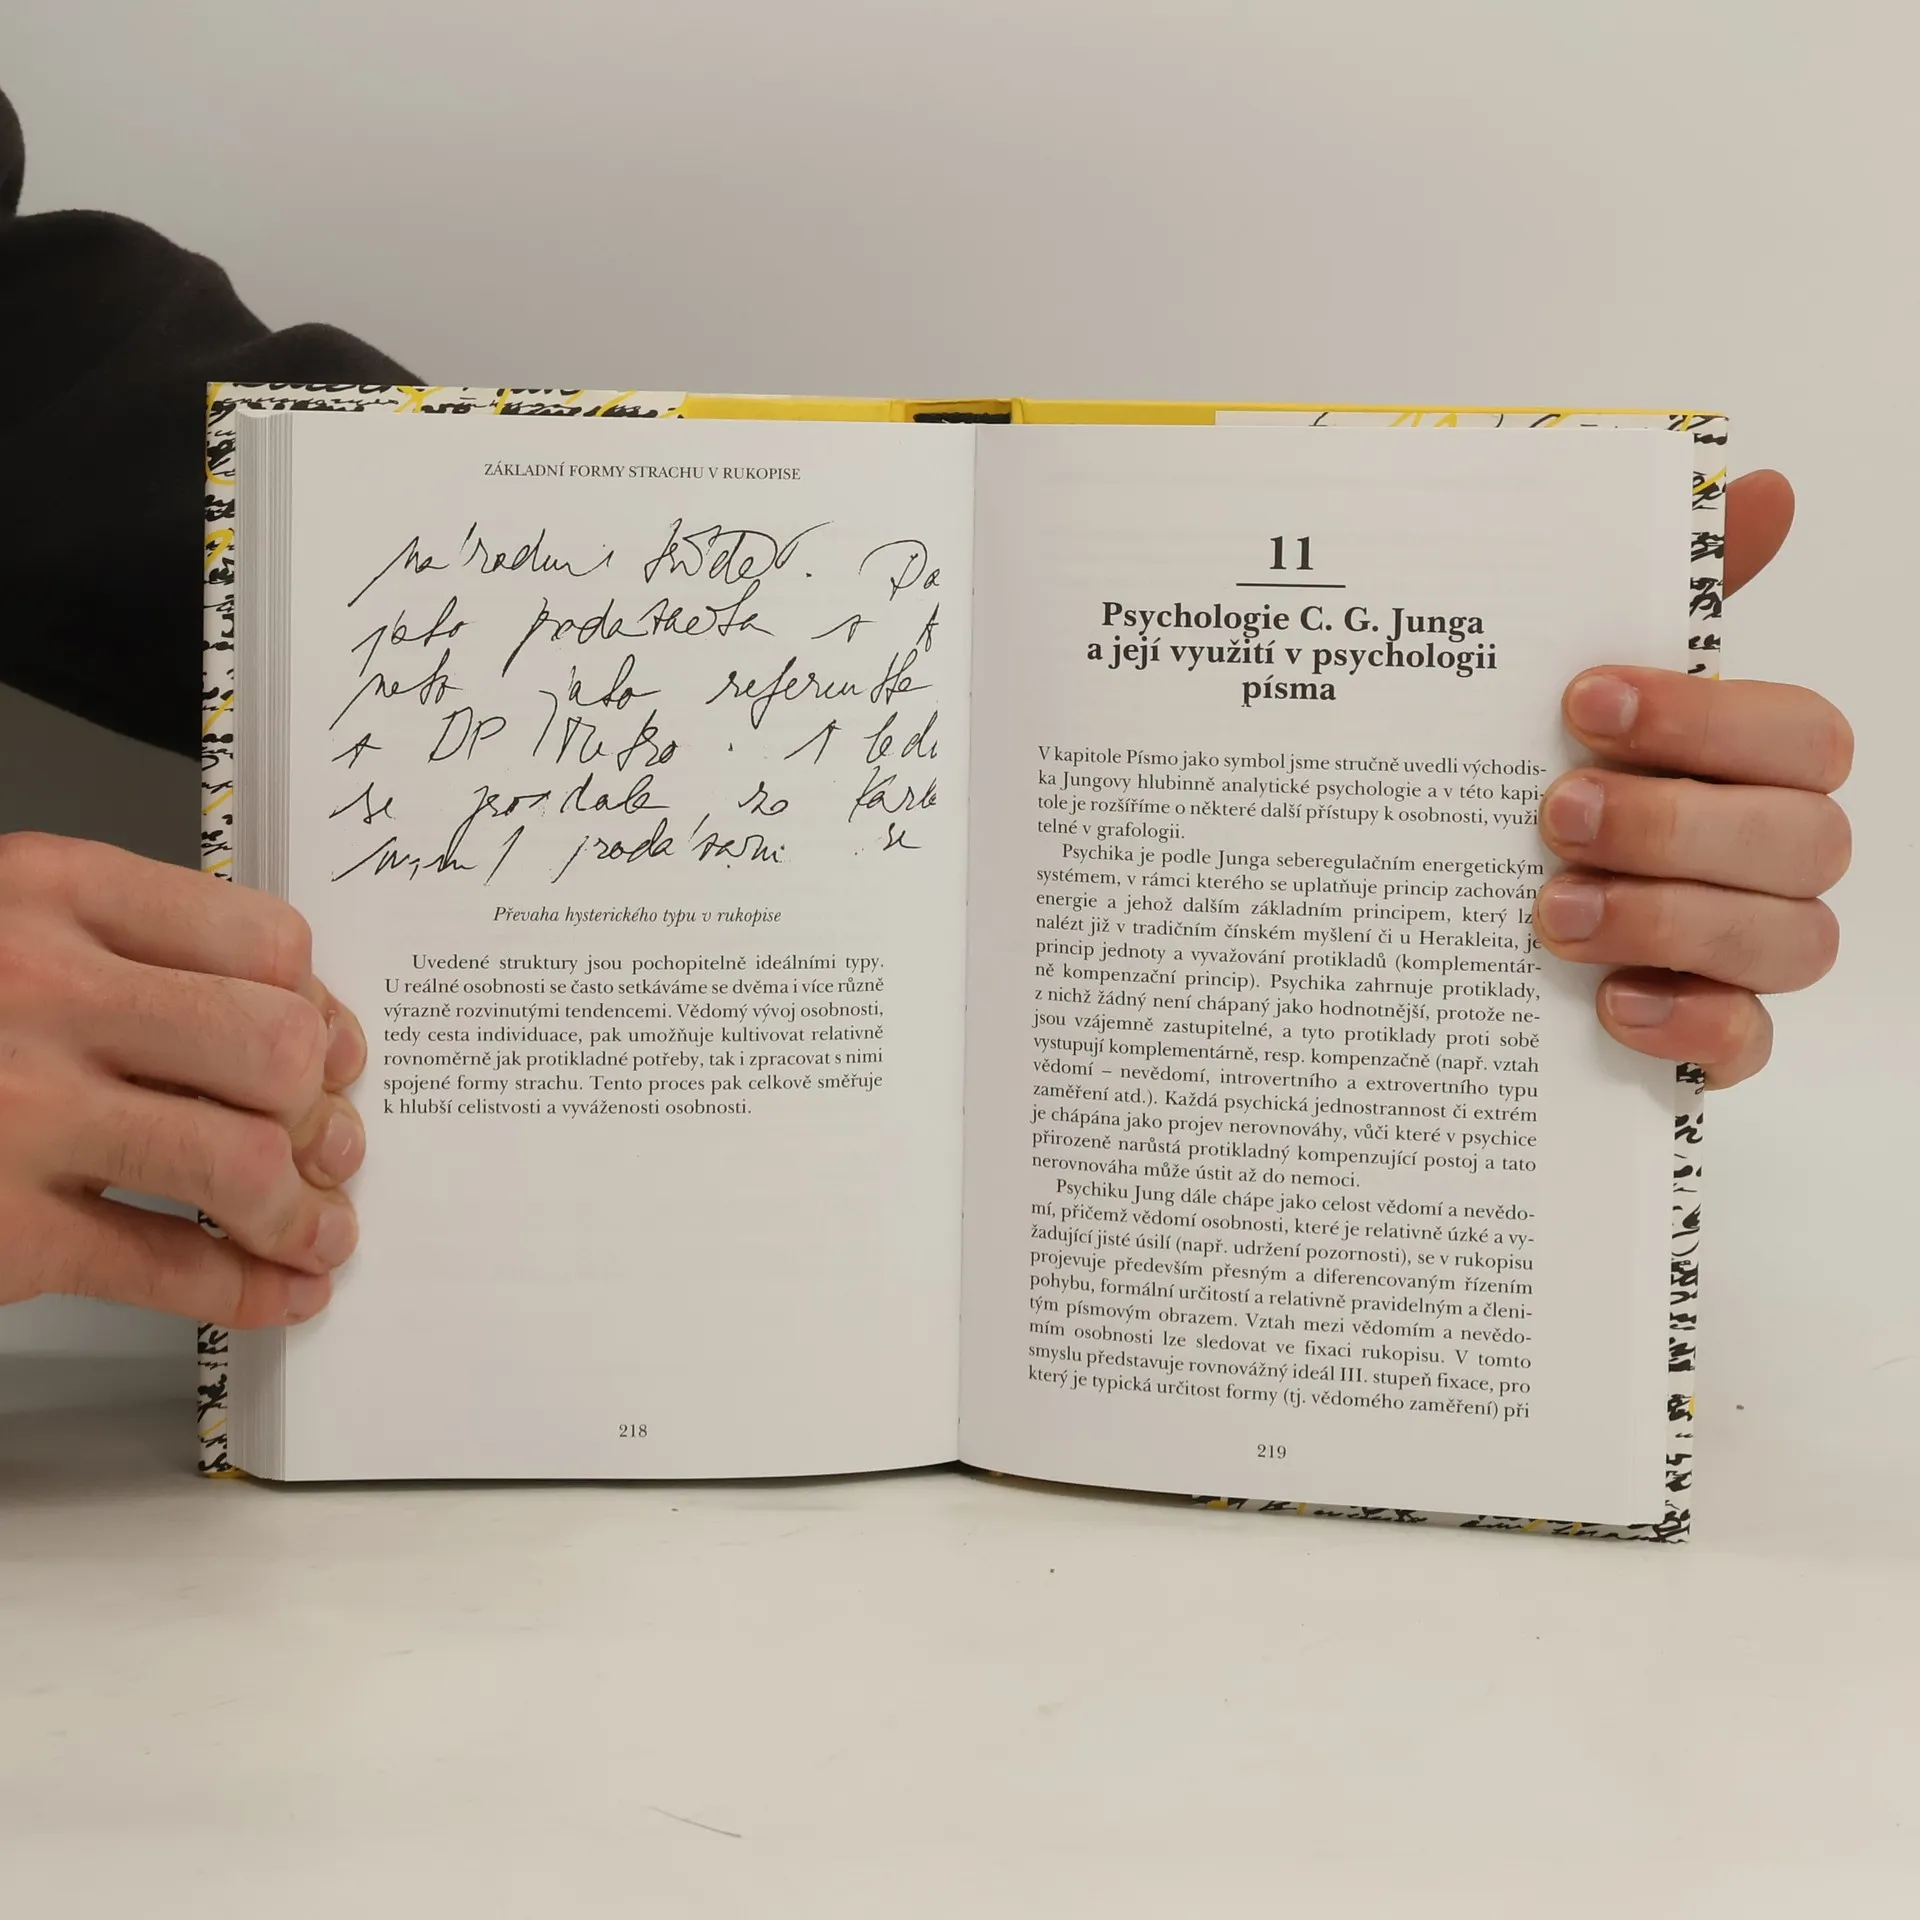 ZÁKLADNÍ FORMY STRACHU V RUKOPISE
jako
nebo jako referentka
DP
se
se
Převaha hysterického typu v rukopise
Uvedené struktury jsou pochopitelně ideálními typy.
U reálné osobnosti se často setkáváme se dvěma i více různě
výrazně rozvinutými tendencemi. Vědomý vývoj osobnosti,
tedy cesta individuace, pak umožňuje kultivovat relativně
rovnoměrně jak protikladné potřeby, tak i zpracovat s nimi
spojené formy strachu. Tento proces pak celkově směřuje
k hlubší celistvosti a vyváženosti osobnosti.
218
11
Psychologie C. G. Junga
a její využití v psychologii
písma
V kapitole Písmo jako symbol jsme stručně uvedli východis-
ka Jungovy hlubinně analytické psychologie a v této kapi-
tole je rozšíříme o některé další přístupy k osobnosti, využi
telné v grafologii.
Psychika je podle Junga seberegulačním energetickým
systémem, v rámci kterého se uplatňuje princip zachování
energie a jehož dalším základním principem, který lz
nalézt již v tradičním čínském myšlení či u Herakleita, je
princip jednoty a vyvažování protikladů (komplementár-
ně kompenzační princip). Psychika zahrnuje protiklady,
z nichž žádný není chápaný jako hodnotnější, protože ne-
jsou vzájemně zastupitelné, a tyto protiklady proti sobě
vystupují komplementárně, resp. kompenzačně (např. vztah
vědomí – nevědomí, introvertního a extrovertního typu
zaměření atd.). Každá psychická jednostrannost či extrém
je chápána jako projev nerovnováhy, vůči které v psychice
přirozeně narůstá protikladný kompenzující postoj a tato
nerovnováha může ústit až do nemoci.
Psychiku Jung dále chápe jako celost vědomí a nevědo-
mí, přičemž vědomí osobnosti, které je relativně úzké a vy-
žadující jisté úsilí (např. udržení pozornosti), se v rukopisu
projevuje především přesným a diferencovaným řízením
pohybu, formální určitostí a relativně pravidelným a členi-
tým písmovým obrazem. Vztah mezi vědomím a nevědo-
mím osobnosti lze sledovat ve fixaci rukopisu. V tomto
smyslu představuje rovnovážný ideál III. stupeň fixace, pro
který je typická určitost formy (tj. vědomého zaměření) při
219